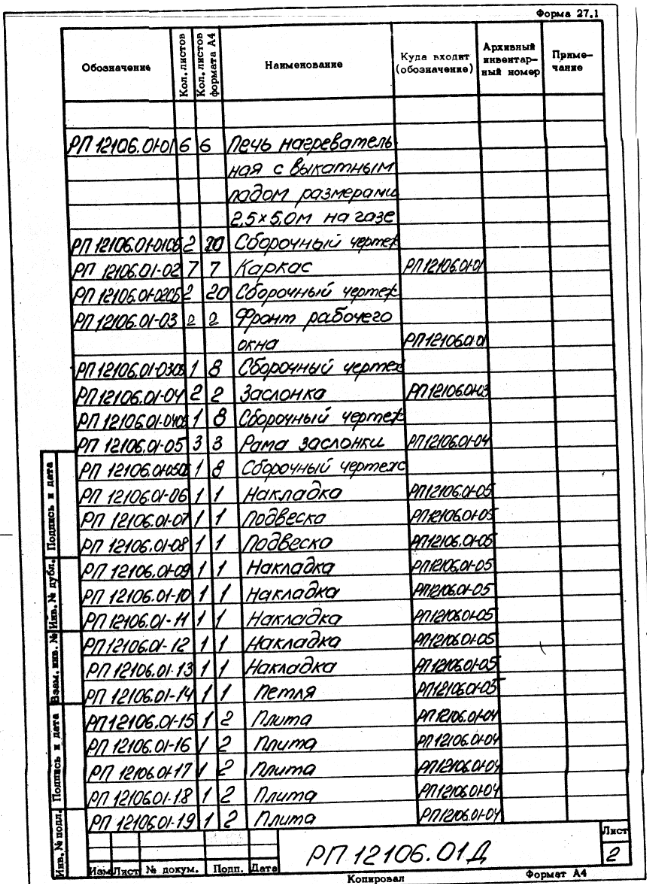 Форма 27.1
Обозначение Кол. листов Кол. листов формата А4 Наименование Куда входит (обозначение) Архивный инвентарный номер Примечание
РП 12106.01-01 6 6 Печь нагреватель
ная с выкатным
подом размерами
2,5×5,0м на газе
РП 12106.01-01СБ 2 20 Сборочный чертеж
РП 12106.01-02 7 7 Каркас РП 12106.01-01
РП 12106.01-02СБ 2 20 Сборочный чертеж
РП 12106.01-03 2 2 Фронт рабочего
окна РП12106.01-01
РП 12106.01-03СБ 1 8 Сборочный чертеж
РП 12106.01-04 2 2 Заслонка РП 12106.01-03
РП 12106.01-04СБ 1 8 Сборочный чертеж
РП 12106.01-05 3 3 Рама заслонки РП 12106.01-04
РП 12106.01-05СБ 1 8 Сборочный чертеж
РП 12106.01-06 1 1 Накладка РП12106.01-05
РП 12106.01-07 1 1 Подвеска РП12106.01-05
РП 12106.01-08 1 1 Подвеска РП12106.01-05
РП 12106.01-09 1 1 Накладка РП12106.01-05
РП 12106.01-10 1 1 Накладка РП12106.01-05
РП 12106.01-11 1 1 Накладка РП12106.01-05
РП12106.01-12 1 1 Накладка РП12106.01-05
РП 12106.01-13 1 1 Накладка РП12106.01-05
РП 12106.01-14 1 1 Петля РП12106.01-05
РП12106.01-15 1 2 Плита РП12106.01-04
РП 12106.01-16 1 2 Плита РП12106.01-04
РП 12106.01-17 1 2 Плита РП12106.01-04
РП 12106.01-18 1 2 Плита РП12106.01-04
РП 12106.01-19 1 2 Плита РП12106.01-04
Подпись и дата
Инв. № дубл.
Взам. инв. №
Подпись и дата
Инв. № подл.
Изм Лист № докум. Подп. Дата
РП 12106.01Д
Лист
2
Копировал Формат А4